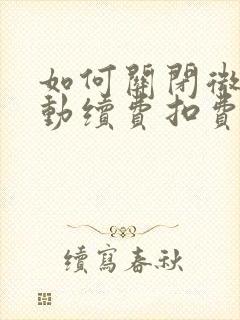 如何關閉微
動續費扣費
續寫春秋